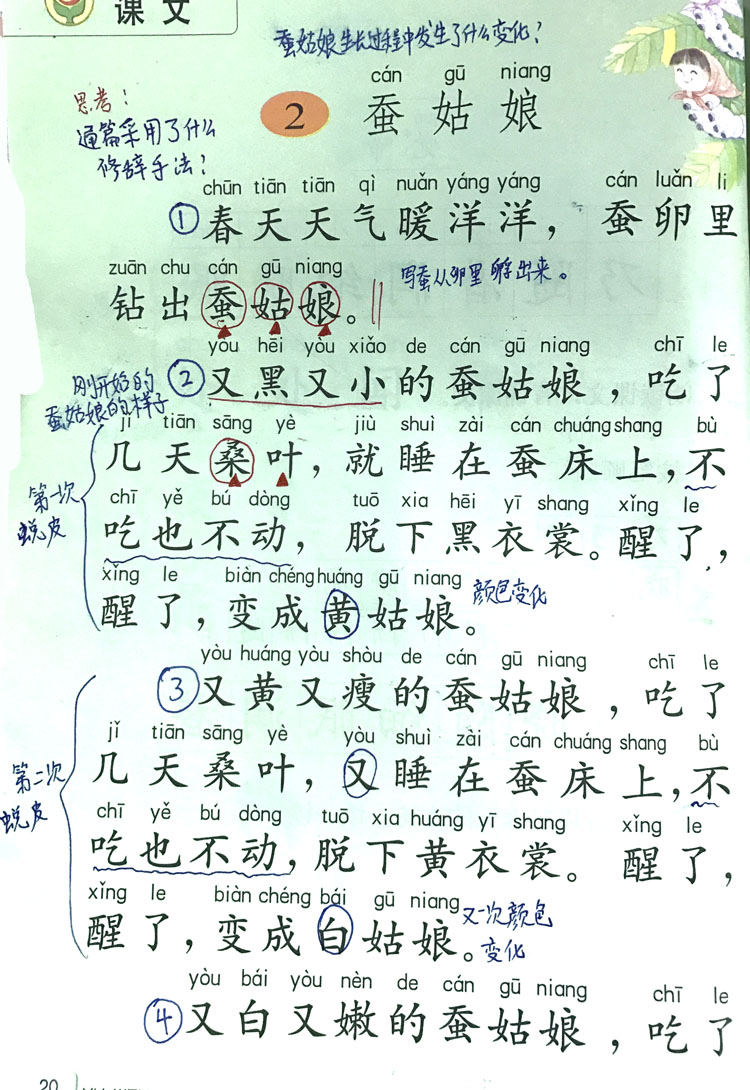 课文
蚕姑娘生长过程中发生了什么变化？
cán gū niang
2 蚕姑娘
思考：
通篇采用了什么
修辞手法？
chūn tiān tiān qì nuǎn yáng yáng cán luǎn li
①春天天气暖洋洋，蚕卵里
zuān chu cán gū niang
钻出蚕姑娘。
写蚕从卵里孵出来。
yòu hēi yòu xiǎo de cán gū niang chī le
②又黑又小的蚕姑娘，吃了
刚开始的
蚕姑娘的样子
jǐ tiān sāng yè jiù shuì zài cán chuáng shang bù
几天桑叶，就睡在蚕床上，不
第一次
蜕皮
chī yě bú dòng tuō xia hēi yī shang xǐng le
吃也不动，脱下黑衣裳。醒了，
xǐng le biàn chéng huáng gū niang
醒了，变成黄姑娘。
颜色变化
yòu huáng yòu shòu de cán gū niang chī le
③又黄又瘦的蚕姑娘，吃了
jǐ tiān sāng yè yòu shuì zài cán chuáng shang bù
几天桑叶，又睡在蚕床上，不
第二次
蜕皮
chī yě bú dòng tuō xia huáng yī shang xǐng le
吃也不动，脱下黄衣裳。醒了，
xǐng le biàn chéng bái gū niang
醒了，变成白姑娘。
又一次颜色
变化
yòu bái yòu nèn de cán gū niang chī le
④又白又嫩的蚕姑娘，吃了
20